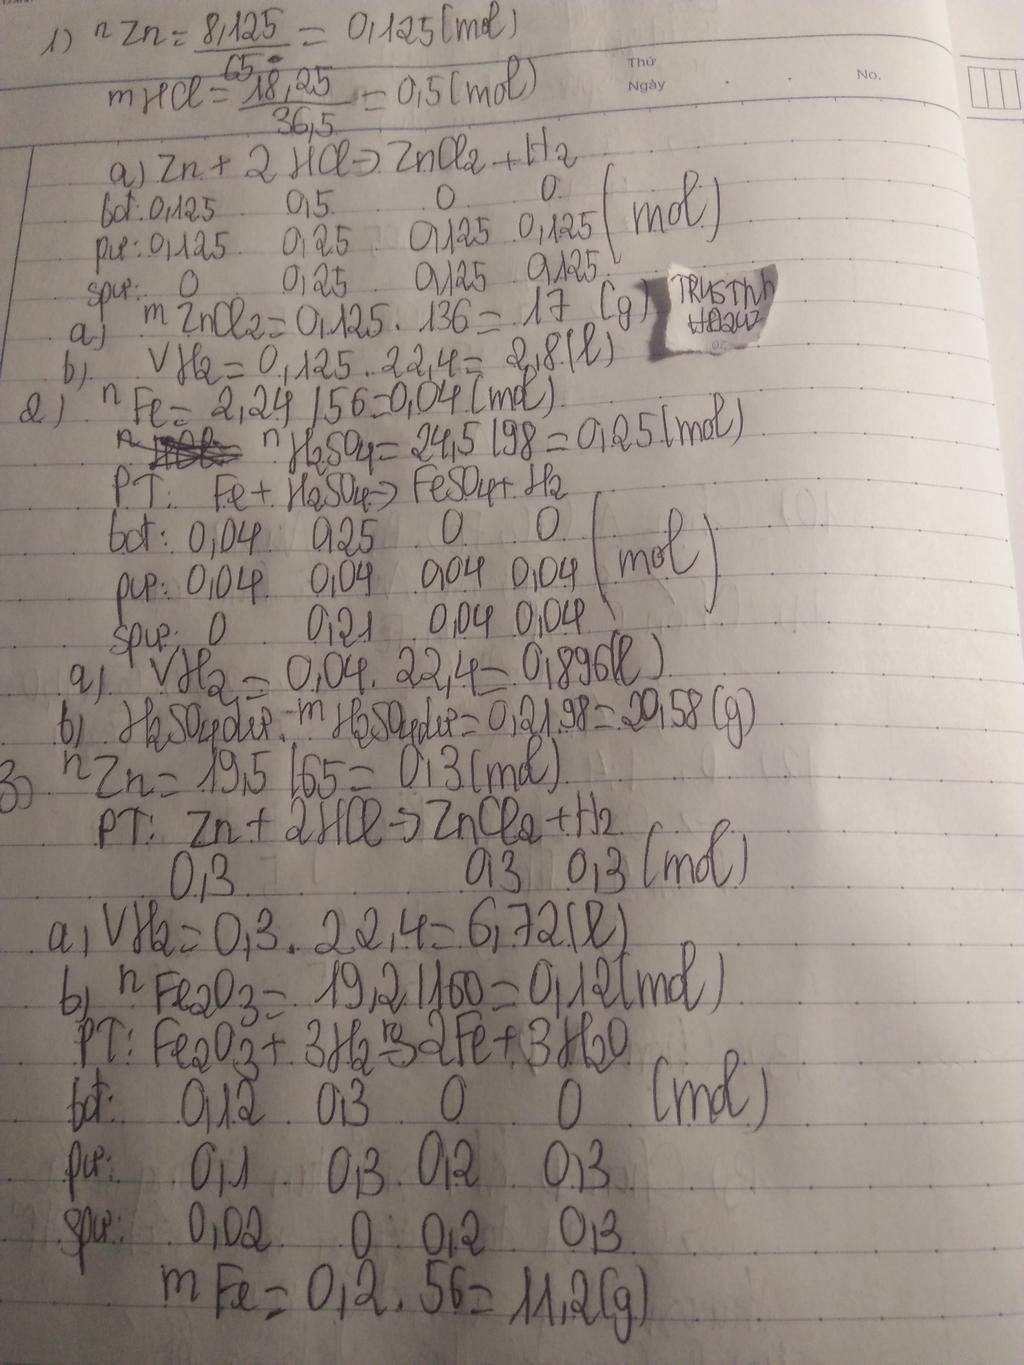 1) nZn = 8,125/65 = 0,125 (mol)
Thứ
Ngày
No.
mHCl = 18,25/36,5 = 0,5 (mol)
a) Zn + 2HCl → ZnCl2 + H2
bđt: 0,125 0,5 0 0
pư: 0,125 0,25 0,125 0,125 (mol)
spư: 0 0,25 0,125 0,125
TRUSTNH
a) mZnCl2 = 0,125 . 136 = 17 (g)
b) VH2 = 0,125 . 22,4 = 2,8 (l)
2) nFe = 2,24/56 = 0,04 (mol)
n nH2SO4 = 24,5/98 = 0,25 (mol)
PT: Fe + H2SO4 → FeSO4 + H2
bđt: 0,04 0,25 0 0
pư: 0,04 0,04 0,04 0,04 (mol)
spư: 0 0,21 0,04 0,04
a) VH2 = 0,04 . 22,4 = 0,896 (l)
b) H2SO4 dư. mH2SO4 dư = 0,21.98 = 20,58 (g)
3) nZn = 19,5/65 = 0,3 (mol)
PT: Zn + 2HCl → ZnCl2 + H2
0,3 0,3 0,3 (mol)
a) VH2 = 0,3 . 22,4 = 6,72 (l)
b) nFe2O3 = 19,2/160 = 0,12 (mol)
PT: Fe2O3 + 3H2 → 2Fe + 3H2O
bđt: 0,12 0,3 0 0 (mol)
pư: 0,1 0,3 0,2 0,3
spư: 0,02 0 0,2 0,3
mFe = 0,2 . 56 = 11,2 (g)